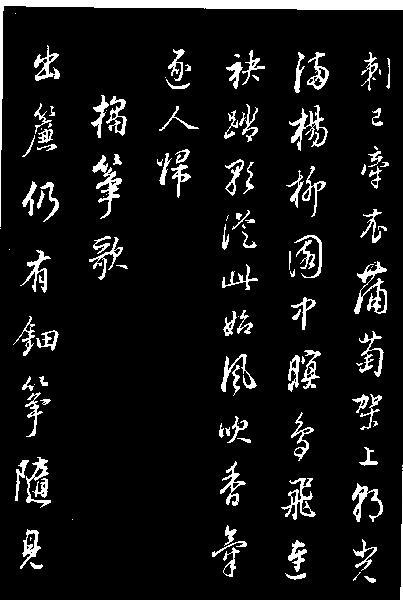 刺已牽衣蒲萄架上朝光
滿楊柳園中暝鳥飛連
袂踏歌從此始風吹香氣
逐人歸
搊箏歌
出簾仍有鈿箏隨見